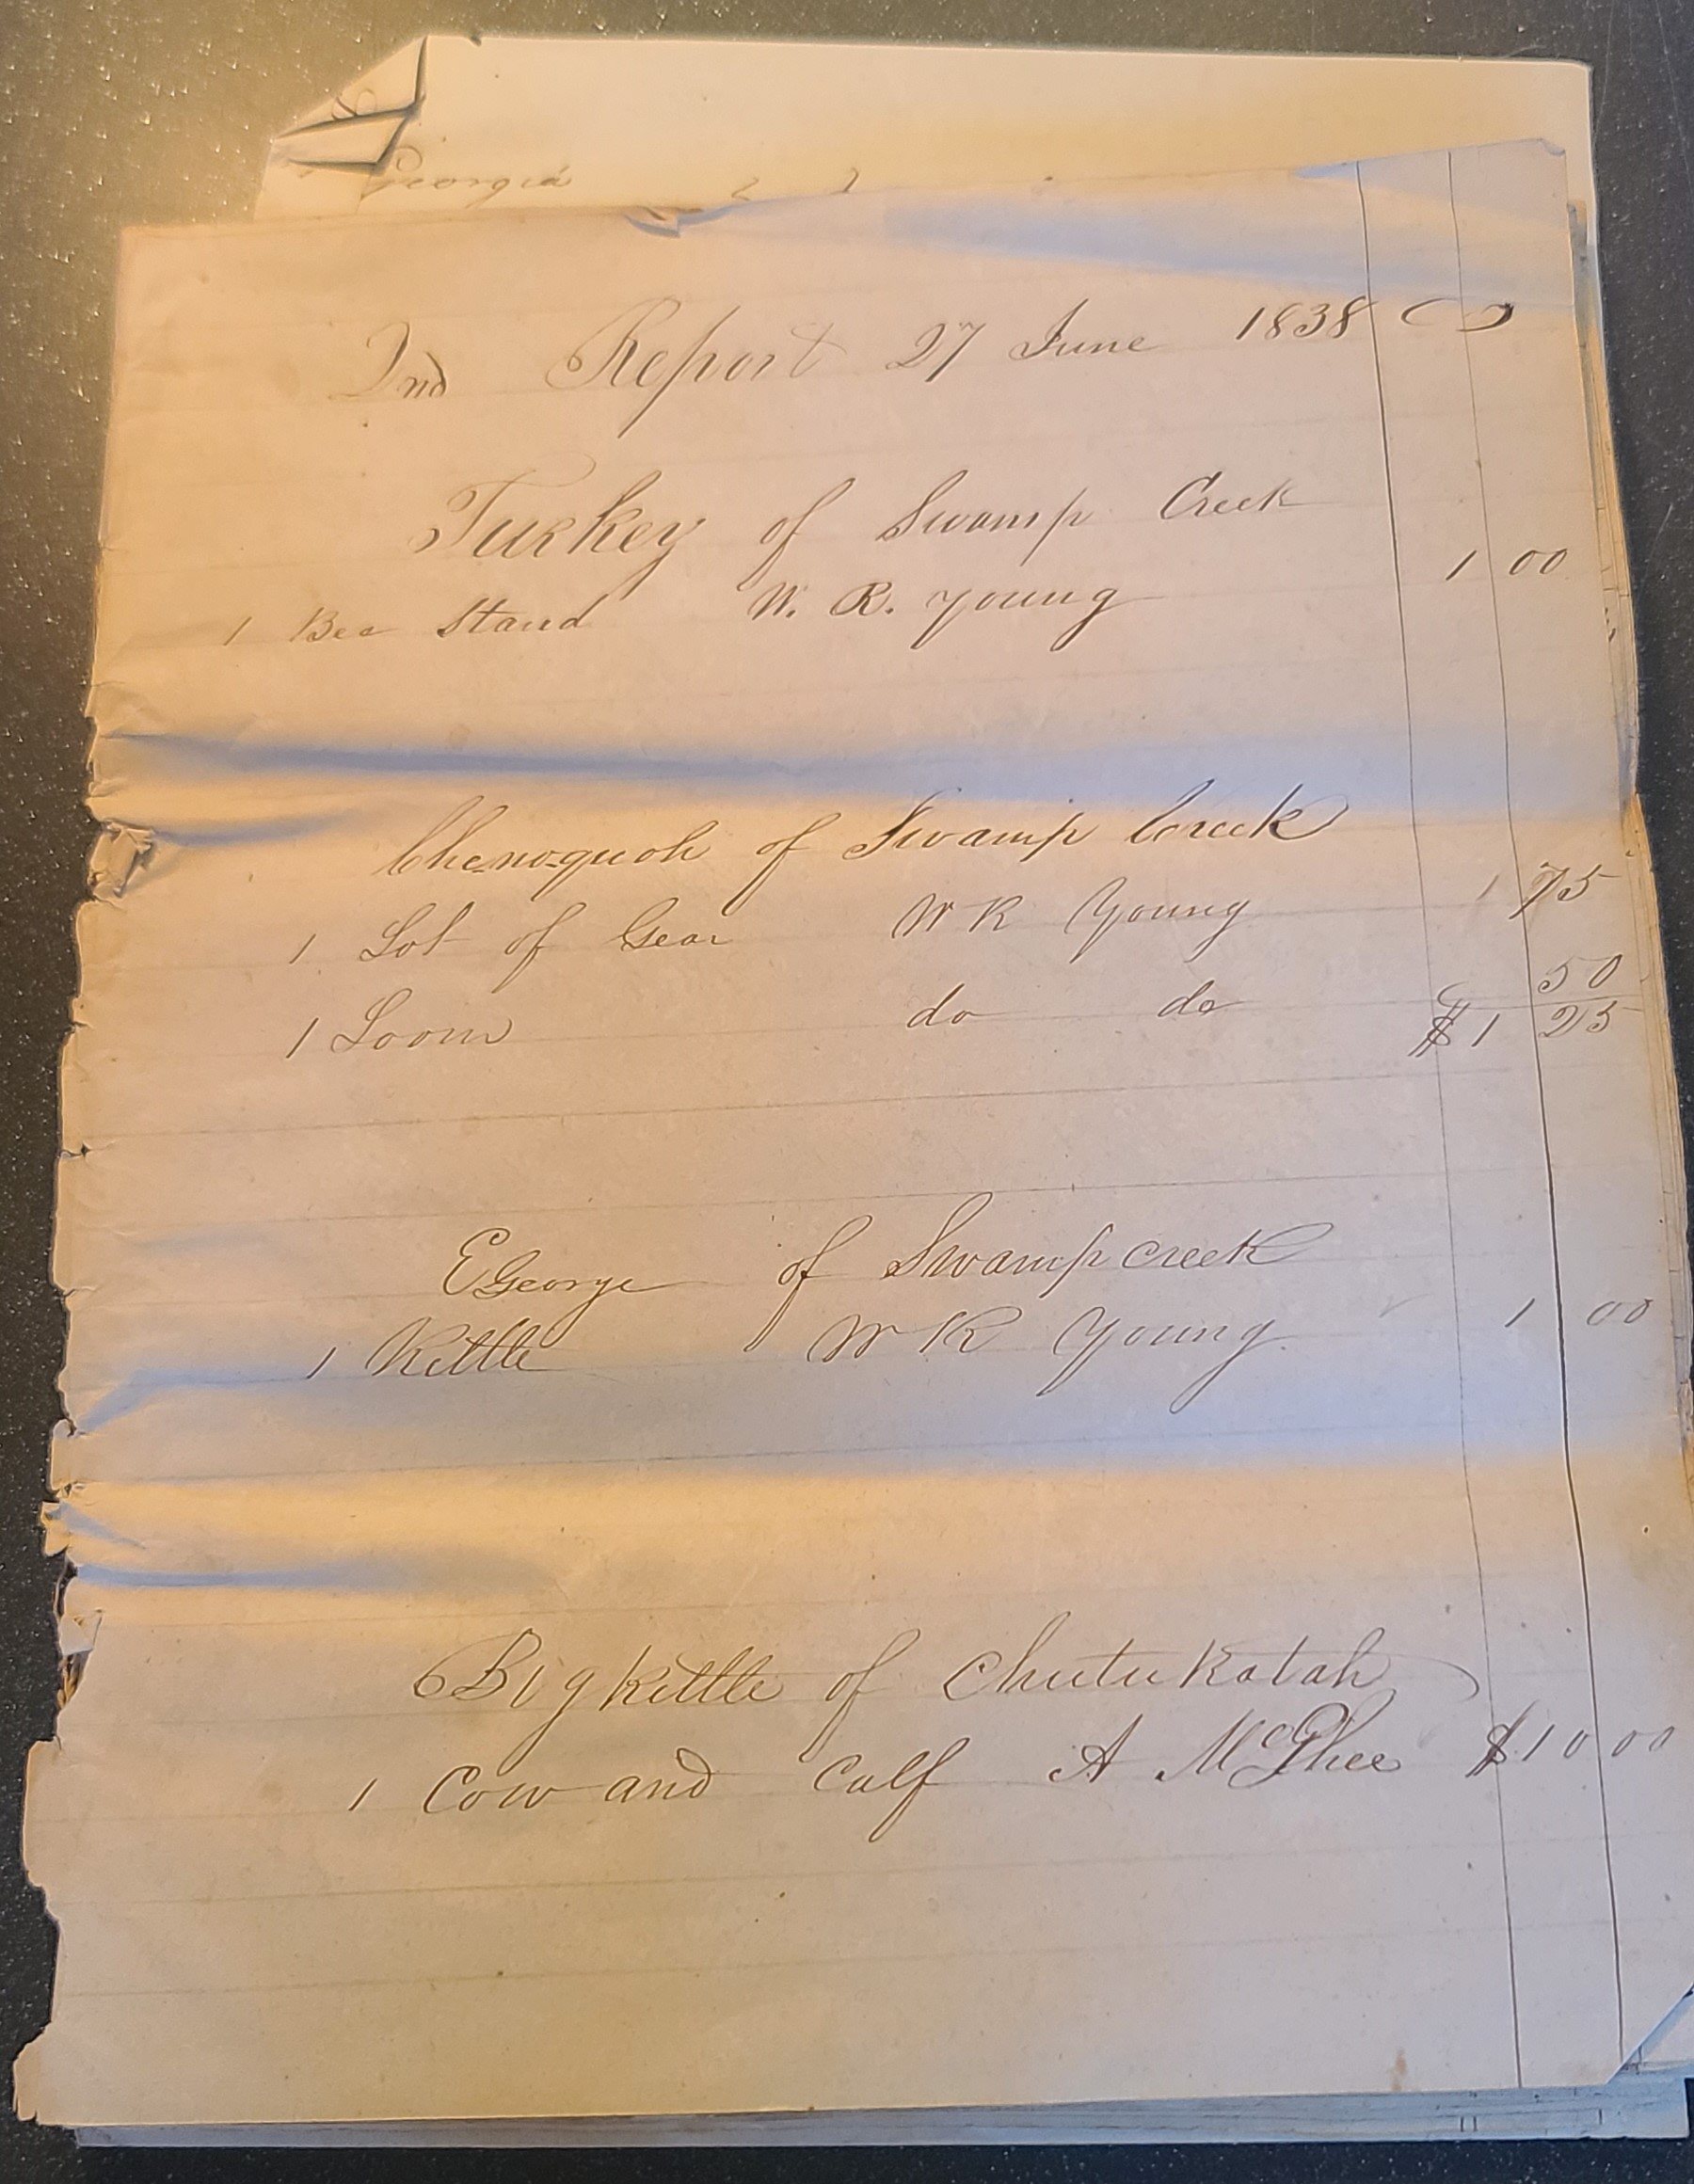 Georgia
2nd Report 27 June 1838
Turkey of Swamp Creek
1 Bee Stand W. R. Young 1 00
Che-no-quah of Swamp Creek
1 Lot of Gear W R Young 1 75
1 Loom do do 50
$1 25
E George of Swamp creek
1 Kettle W R Young 1 00
Big Kettle of Chutukatah
1 Cow and Calf A McGhee $10 00